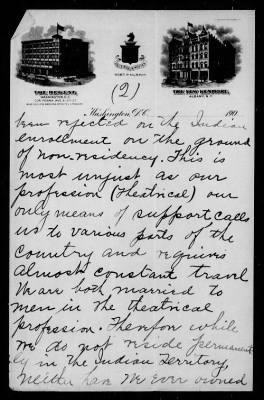 THE REGENT,
WASHINGTON, D.C.
THE NEW KENMORE,
ALBANY, N.Y.
(2)
Washington, D.C. 190
been rejected on the Indian
enrollment on the ground
of non-residency. This is
most unjust as our
profession (theatrical) our
only means of support calls
us to various parts of the
country and requires
almost constant travel
We are both married to
men in the theatrical
profession. Therefore while
we do not reside permanent
ly in the Indian Territory,
neither have we ever owned